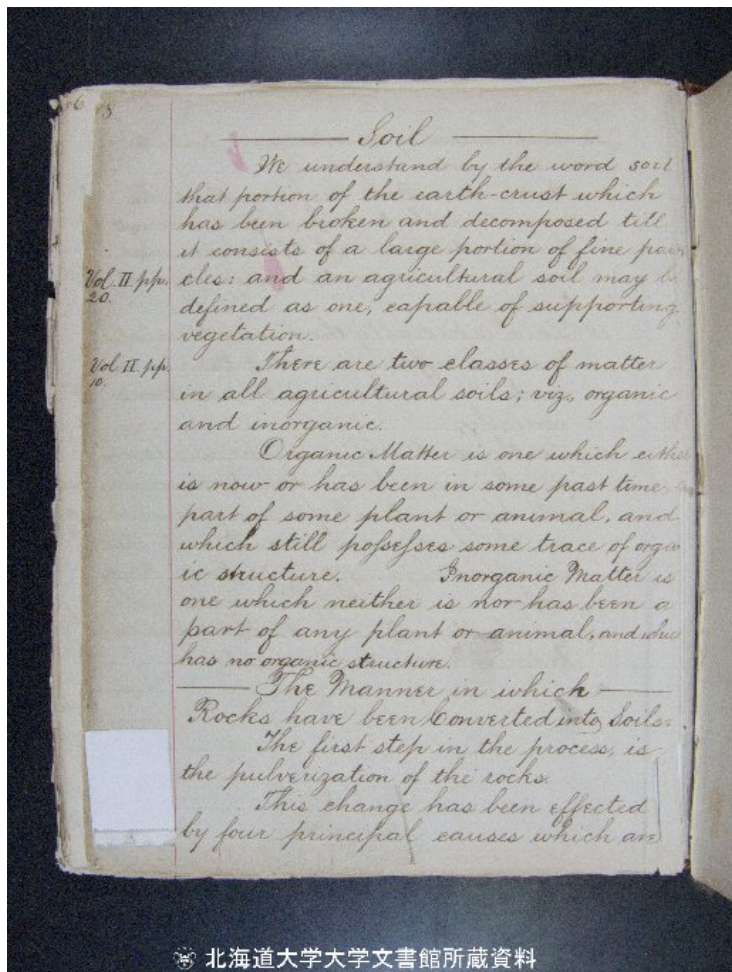 Soil
We understand by the word soil
that portion of the earth-crust which
has been broken and decomposed till
it consists of a large portion of fine par
Vol. II. pp. 20.
cles: and an agricultural soil may be
defined as one, capable of supporting
vegetation.
Vol II. pp. 10.
There are two classes of matter
in all agricultural soils; viz., organic
and inorganic.
Organic Matter is one which either
is now or has been in some past time,
part of some plant or animal, and
which still possesses some trace of organ
ic structure. Inorganic Matter is
one which neither is nor has been a
part of any plant or animal, and which
has no organic structure.
The Manner in which
Rocks have been Converted into Soils.
The first step in the process, is
the pulverization of the rocks.
This change has been effected
by four principal causes which are
北海道大学大学文書館所蔵資料